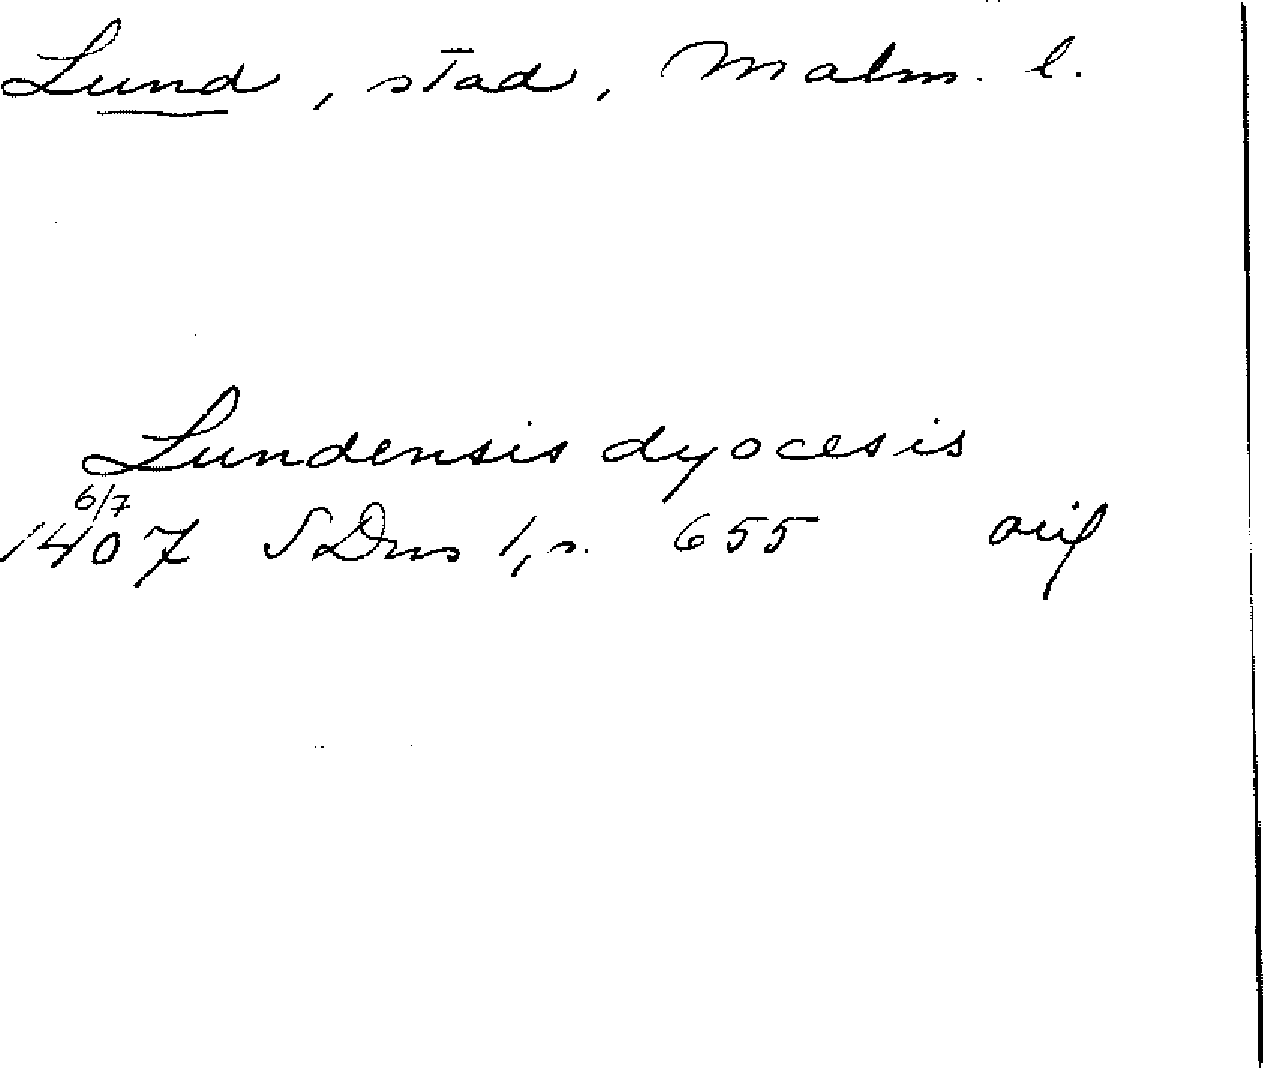 Lund, stad, Malm. l.
Lundensis dyocesis
6/7
1407 SDns 1, s. 655